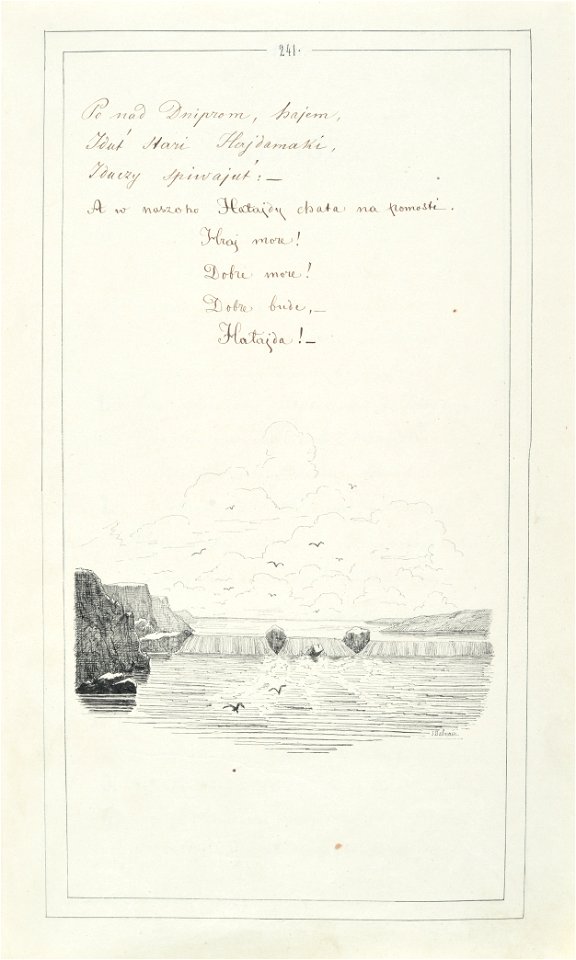 241.
Po nad Dniprom, hajem,
Idut́ stari Hajdamaki,
Iduczy spiwajut́: —
A w naszoho Hałajdy chata na pomosti.
Hraj more!
Dobre more!
Dobre bude, —
Hałajda! —